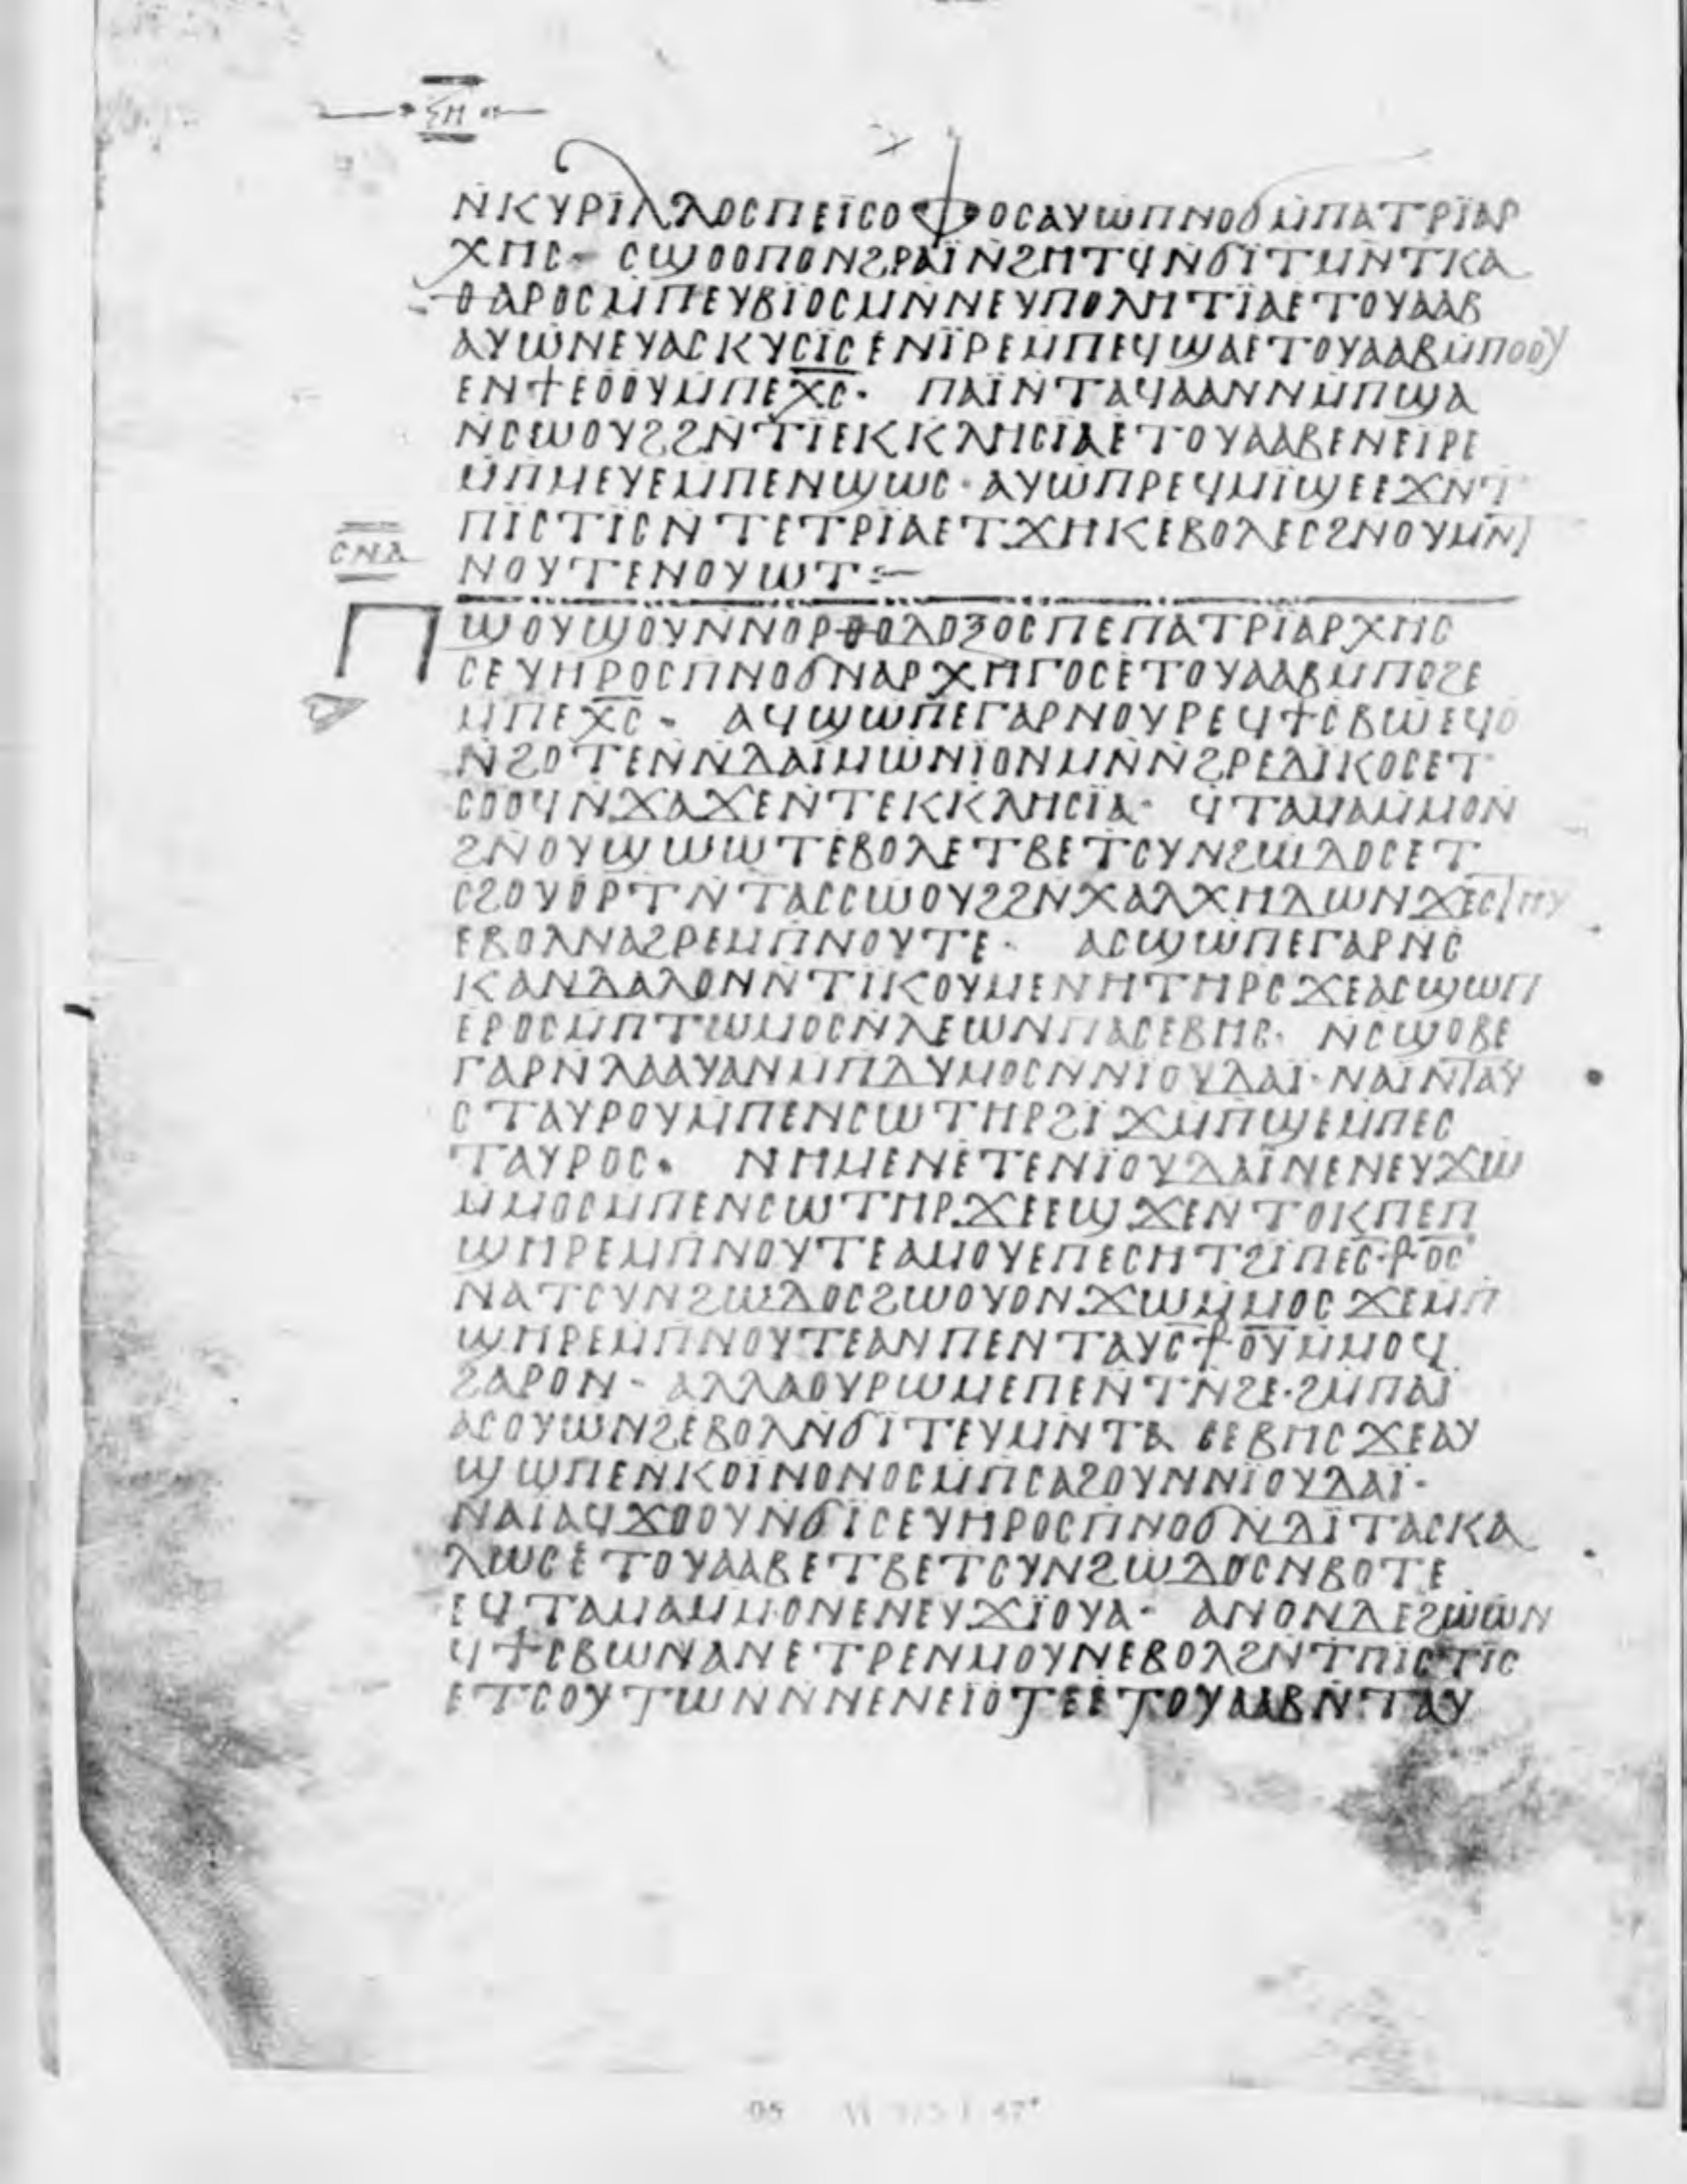 ϨΗ
ⲚⲔⲨⲢⲒ̈ⲖⲖⲞⲤⲠⲈⲒ̈ⲤⲞⲪⲞⲤⲀⲨⲰⲠⲚⲞϬⲘ̇ⲠⲀⲦⲢⲒ̈ⲀⲢ
ⲬⲎⲤ· ⲤϢⲞⲞⲠⲞⲚϨⲢⲀⲒ̈Ⲛ̇ϨⲎⲦϤⲚ̇ϬⲒ̈ⲦⲘⲚ̇ⲦⲔⲀ
ⲐⲀⲢⲞⲤⲘ̇ⲠⲈⲨⲂⲒ̈ⲞⲤⲘⲚ̇ⲚⲈⲨⲠⲞⲖⲎⲦⲒ̈ⲀⲈⲦⲞⲨⲀⲀⲂ
ⲀⲨⲰ̇ⲚⲈⲨⲀⲤⲔⲨⲤⲒ̈ⲤⲈ̇ⲚⲒ̈ⲢⲈⲘ̇ⲠⲈϤϢⲀⲈⲦⲞⲨⲀⲀⲂⲘ̇ⲠⲞⲞⲨ
ⲈⲚϮⲈⲞⲞⲨⲘ̇ⲠⲈⲬ̅Ⲥ̅· ⲠⲀⲒ̈Ⲛ̇ⲦⲀϤⲀⲀⲚⲚ̇ⲘⲠϢⲀ
Ⲛ̇ⲤⲰⲞⲨϨϨⲚ̇ⲦⲒ̈ⲈⲔⲔⲖⲎⲤⲒ̈ⲀⲈ̇ⲦⲞⲨⲀⲀⲂⲈⲚⲈⲒ̈ⲢⲈ
Ⲙ̇ⲠⲘⲈⲨⲈⲘ̇ⲠⲈⲚϢⲰⲤ· ⲀⲨⲰ̇ⲠⲢⲈϤⲘⲒ̈ϢⲈⲈϪⲚ̇Ⲧ
ⲠⲒ̈ⲤⲦⲒ̈ⲤⲚ̇ⲦⲈⲦⲢⲒ̈ⲀⲈⲦϪⲎⲔⲈⲂⲞⲖⲈⲤϨⲚⲞⲨⲘⲚ̇
ⲤⲚⲀ
ⲚⲞⲨⲦⲈⲚⲞⲨⲰⲦ:—
ⲠϢⲞⲨϢⲞⲨⲚ̇ⲚⲞⲢⲐⲞⲆⲞⲜⲞⲤⲠⲈⲠⲀⲦⲢⲒ̈ⲀⲢⲬⲎⲤ
ⲤⲈⲨⲎⲢⲞⲤⲠⲚⲞϬⲚ̇ⲀⲢⲬⲎⲄⲞⲤⲈ̇ⲦⲞⲨⲀⲀⲂⲘ̇ⲠⲞϨⲈ
Ⲙ̇ⲠⲈⲬ̅Ⲥ̅· ⲀϤϢⲰⲠⲈⲄⲀⲢⲚⲞⲨⲢⲈϤϮⲤⲂⲰⲈϤⲞ
Ⲛ̇ϨⲞⲦⲈⲚ̇ⲚⲆⲀⲒ̈ⲘⲰⲚⲒ̈ⲞⲚⲘⲚ̇Ⲛ̇ϨⲢⲈⲆⲒ̈ⲔⲞⲤⲈⲦ
ⲤⲞⲞϤⲚ̇ϪⲀϪⲈⲚ̇ⲦⲈⲔⲔⲖⲎⲤⲒ̈Ⲁ· ϤⲦⲀⲘⲀⲘ̇ⲘⲞⲚ
ϨⲚ̇ⲞⲨϢⲰⲰⲦⲈⲂⲞⲖⲈⲦⲂⲈⲦⲤⲨⲚϨⲰⲆⲞⲤⲈⲦ
ⲤϨⲞⲨⲞⲢⲦⲚ̇ⲦⲀⲤⲤⲰⲞⲨϨϨⲚⲬⲀⲖⲬⲎⲆⲰⲚϪⲈⲤ
ⲈⲂⲞⲖⲚⲀϨⲢⲈⲘ̇ⲠⲚⲞⲨⲦⲈ· ⲀⲤϢⲰⲠⲈⲄⲀⲢⲚ̇Ⲥ
ⲔⲀⲚⲆⲀⲖⲞⲚⲚ̇ⲦⲒ̈ⲔⲞⲨⲘⲈⲚⲎⲦⲎⲢⲤϪⲈⲀⲤϢⲰⲠ
ⲈⲢⲞⲤⲘ̇ⲠⲦⲰⲘⲞⲤⲚ̇ⲖⲈⲰⲚⲠⲀⲤⲈⲂⲎⲤ· Ⲛ̇ⲤϢⲞⲂⲈ
ⲄⲀⲢⲚ̇ⲖⲀⲀⲨⲀⲚⲘ̇ⲠⲆⲨⲘⲞⲤⲚ̇ⲚⲒ̈ⲞⲨⲆⲀⲒ̈· ⲚⲀⲒ̈Ⲛ̇ⲦⲀⲨ
ⲤⲦⲀⲨⲢⲞⲨⲘ̇ⲠⲈⲚⲤⲰⲦⲎⲢϨⲒ̈ϪⲘ̇ⲠϢⲈⲘ̇ⲠⲈⲤ
ⲦⲀⲨⲢⲞⲤ· ⲚⲎⲘⲈⲚⲈⲦⲈⲚⲒ̈ⲞⲨⲆⲀⲒ̈ⲚⲈⲚⲈⲨϪⲰ
Ⲙ̇ⲘⲞⲤⲘ̇ⲠⲈⲚⲤⲰⲦⲎⲢϪⲈⲈϢϪⲈⲚ̇ⲦⲞⲔⲠⲈⲠ
ϢⲎⲢⲈⲘ̇ⲠⲚⲞⲨⲦⲈⲀⲘⲞⲨⲈⲠⲈⲤⲎⲦϨⲒ̈ⲠⲈⲤ⳨ⲞⲤ
ⲚⲀⲦⲤⲨⲚϨⲰⲆⲞⲤϨⲰⲞⲨⲞⲚϪⲰⲘ̇ⲘⲞⲤϪⲈⲘ̇Ⲡ
ϢⲎⲢⲈⲘ̇ⲠⲚⲞⲨⲦⲈⲀⲚⲠⲈⲚⲦⲀⲨⲤ⳨ⲞⲨⲘ̇ⲘⲞϤ
ϨⲀⲢⲞⲚ· ⲀⲖⲖⲀⲞⲨⲢⲰⲘⲈⲠⲈⲚ̇ⲦⲚ̇ϨⲈ· ϨⲘ̇ⲠⲀⲒ̈
ⲀⲤⲞⲨⲰⲚϨⲈⲂⲞⲖⲚ̇ϬⲒ̈ⲦⲈⲨⲘⲚ̇ⲦⲀⲤⲈⲂⲎⲤϪⲈⲀⲨ
ϢⲰⲠⲈⲚ̇ⲔⲞⲒ̈ⲚⲞⲚⲞⲤⲘ̇ⲠⲤⲀϨⲞⲨⲚ̇ⲚⲒ̈ⲞⲨⲆⲀⲒ̈·
ⲚⲀⲒ̈ⲀϤϪⲞⲞⲨⲚ̇ϬⲒ̈ⲤⲈⲨⲎⲢⲞⲤⲠⲚⲞϬⲚ̇ⲆⲒ̈ⲦⲀⲤⲔⲀ
ⲖⲰⲤⲈ̇ⲦⲞⲨⲀⲀⲂⲈⲦⲂⲈⲦⲤⲨⲚϨⲰⲆⲞⲤⲚ̇ⲂⲞⲦⲈ
ⲈϤⲦⲀⲘⲀⲘ̇ⲘⲞⲚⲈⲚⲈⲨϪⲒ̈ⲞⲨⲀ· ⲀⲚⲞⲚⲆⲈϨⲰⲰⲚ
ϤϮⲤⲂⲰⲚⲀⲚⲈⲦⲢⲈⲚⲘⲞⲨⲚⲈⲂⲞⲖϨⲚ̇ⲦⲠⲒ̈ⲤⲦⲒ̈Ⲥ
ⲈⲦⲤⲞⲨⲦⲰⲚⲚ̇ⲚⲈⲚⲈⲒⲞⲦⲈⲈⲦⲞⲨⲀⲀⲂⲚ̇ⲦⲀⲨ